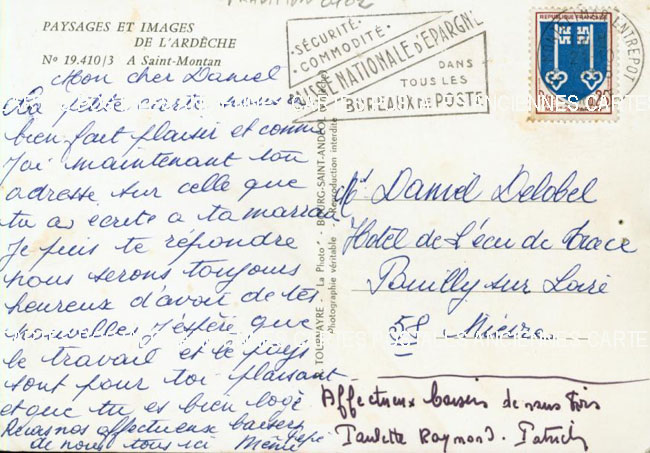 PAYSAGES ET IMAGES
DE L'ARDÈCHE
Nº 19.410/3 A Saint-Montan
Mon cher Daniel
La petite carte nous a
bien fait plaisir et comme
j'ai maintenant ton
adresse sur celle que
tu as écrite a ta marraine
je puis te répondre
nous serons toujours
heureux d'avoir de tes
nouvelles j'éspére que
le travail et le pays
sont pour toi plaisant
et que tu es bien logé
Reçois nos affectueux baisers
de nous tous ici Mémé pépé
TOULOUSE
SÉCURITÉ
COMMODITÉ
CAISSE NATIONALE D'ÉPARGNE
DANS
TOUS LES
BUREAUX DE POSTE
ENTREPOT
REPUBLIQUE FRANCAISE
BOURG-SAINT-ANDÉOL
"La Photo"
Photographie véritable - Reproduction interdite
Mr Daniel Delobel
Hotel de l'écu de France
Pouilly sur Loire
58 Nièvre
Affectueux baisers de nous trois
Paulette Raymond. Patrick
CARTES POSTALES ANCIENNES CARTE